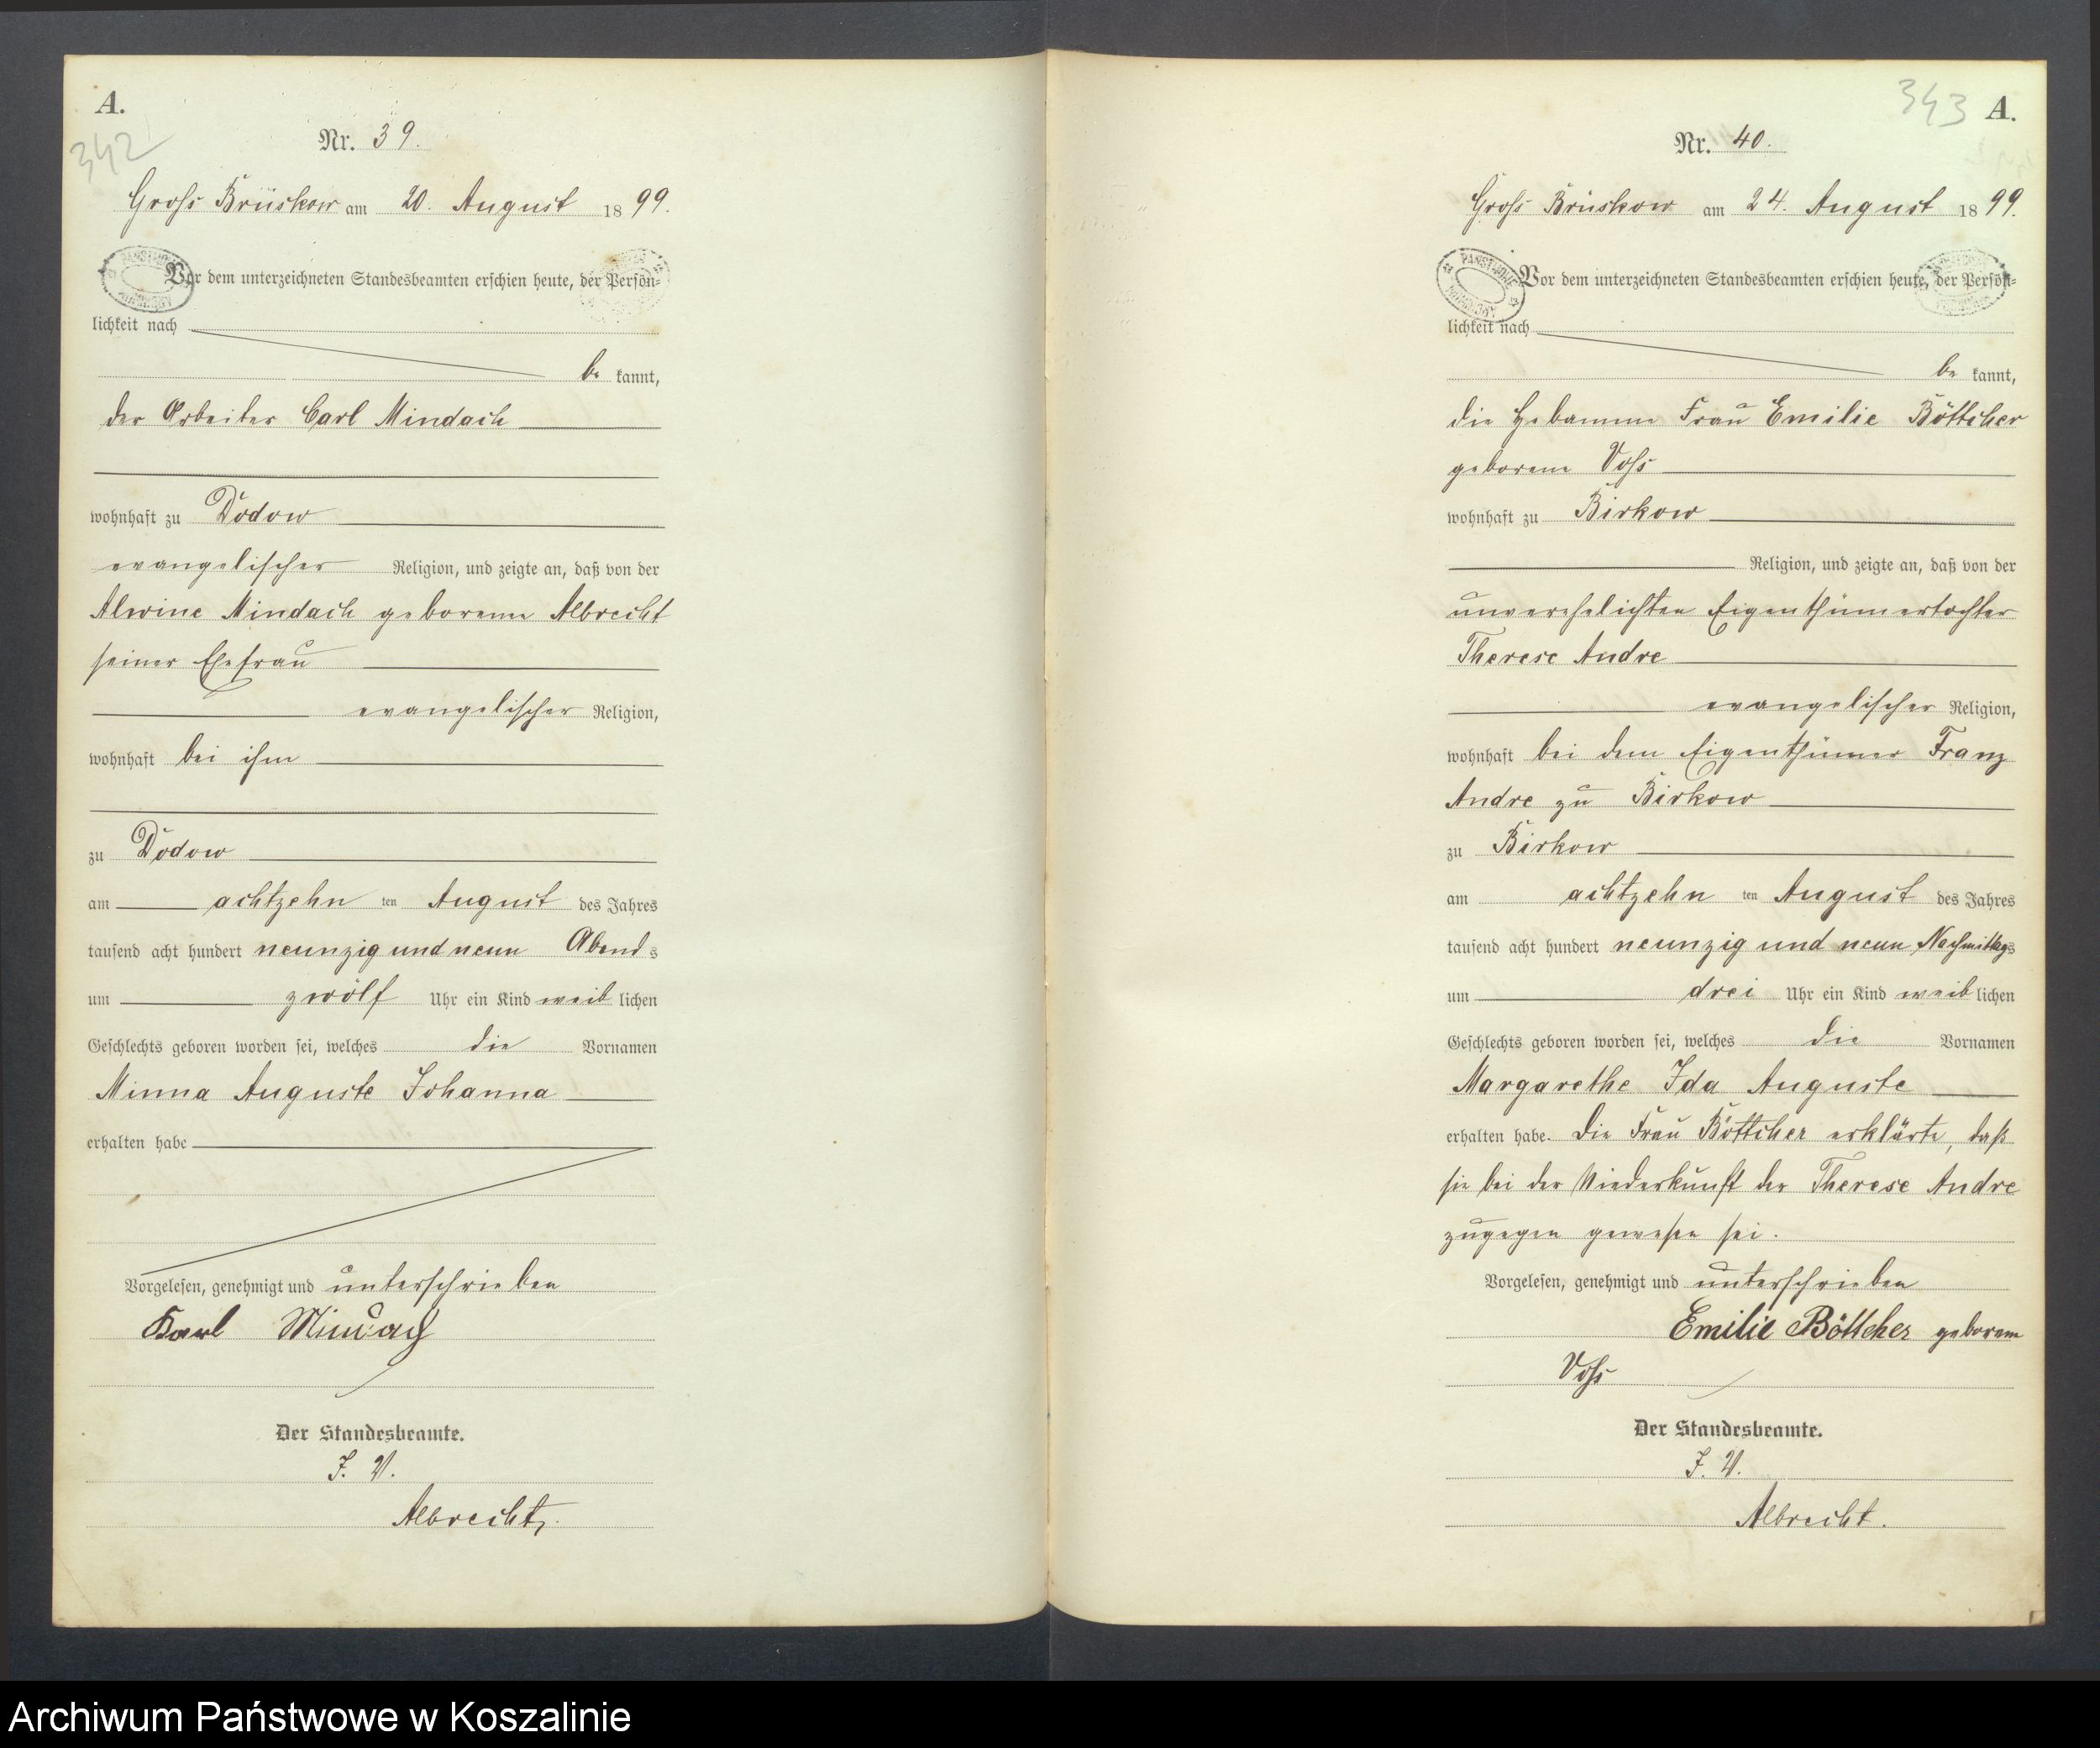 A.
342
Nr. 39.
Gross Brüskow am 20. August 1899.
Vor dem unterzeichneten Standesbeamten erschien heute, der Persön-
lichkeit nach
be kannt,
der Arbeiter Carl Mindach
wohnhaft zu Dodow
evangelischer Religion, und zeigte an, daß von der
Alwine Mindach geborene Albrecht
seiner Ehefrau
evangelischer Religion,
wohnhaft bei ihm
zu Dodow
am achtzehn ten August des Jahres
tausend acht hundert neunzig und neun Abends
um zwölf Uhr ein Kind weiblichen
Geschlechts geboren worden sei, welches die Vornamen
Minna Auguste Johanna
erhalten habe
Vorgelesen, genehmigt und unterschrieben
Karl Mindach
Der Standesbeamte.
J. V.
Albrecht.
343 A.
Nr. 40.
Gross Brüskow am 24. August 1899.
Vor dem unterzeichneten Standesbeamten erschien heute, der Persön-
lichkeit nach
be kannt,
die Hebamme Frau Emilie Böttcher
geborene Voss
wohnhaft zu Birkow
Religion, und zeigte an, daß von der
unverehelichten Eigenthümertochter
Therese Andre
evangelischer Religion,
wohnhaft bei dem Eigenthümer Franz
Andre zu Birkow
zu Birkow
am achtzehn ten August des Jahres
tausend acht hundert neunzig und neun Nachmittags
um drei Uhr ein Kind weiblichen
Geschlechts geboren worden sei, welches die Vornamen
Margarethe Ida Auguste
erhalten habe. Die Frau Böttcher erklärte, daß
sie bei der Niederkunft der Therese Andre
zugegen gewesen sei.
Vorgelesen, genehmigt und unterschrieben
Emilie Böttcher geborene
Voss
Der Standesbeamte.
J. V.
Albrecht.
Archiwum Państwowe w Koszalinie